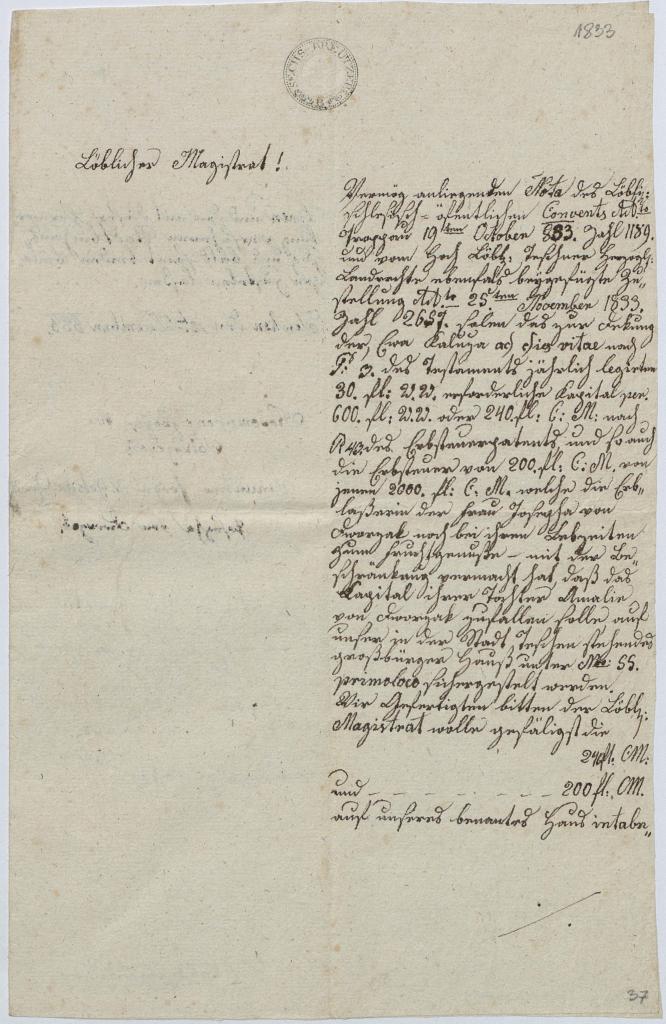 1833
SECHS KREUTZER
Löblicher Magistrat!
Vermög anliegenden Nota des Löbl:
schlesisch-öfentlichen Convents Ad.to
Troppau 19ten Octoben 833. Zahl 1189.
und vom Hoch Löbl: Teschner Herzogl:
Landrechte ebenfals beygefügte Zu=
stellung Ad.to 25ten November 1833.
Zahl 2657. solen das zur Dekung
der, Ewa Kaluza ad dies vitae nach
P: 3. des Testaments jährlich legirten
30. fl: W.W. erforderliche Kapital per.
600. fl: W.W. oder 240. fl: C: M: nach
des Erbsteuerpatents und so auch
die Erbsteuer von 200. fl: C: M. von
jenen 2000. fl: C. M. welche die Erb=
laßerin der Frau Josepha von
Dworzak noch bei ihren Lebzeiten
zum Fruchtgenuße – mit der Be=
schränkung vermacht hat, daß das
Kapital ihrer Tochter Amalie
von Dworzak zufallen solle auf
unser in der Stadt Teschen stehendes
großbürger Hauß unter Nro 55.
primoloco sichergestelt werden.
Wir Gefertigten bitten der Löbl:
Magistrat wolle gefäligst die
240 fl. CM:
und – – – – – – 200 fl: CM.
auf unseres benantes Haus intabu=
37